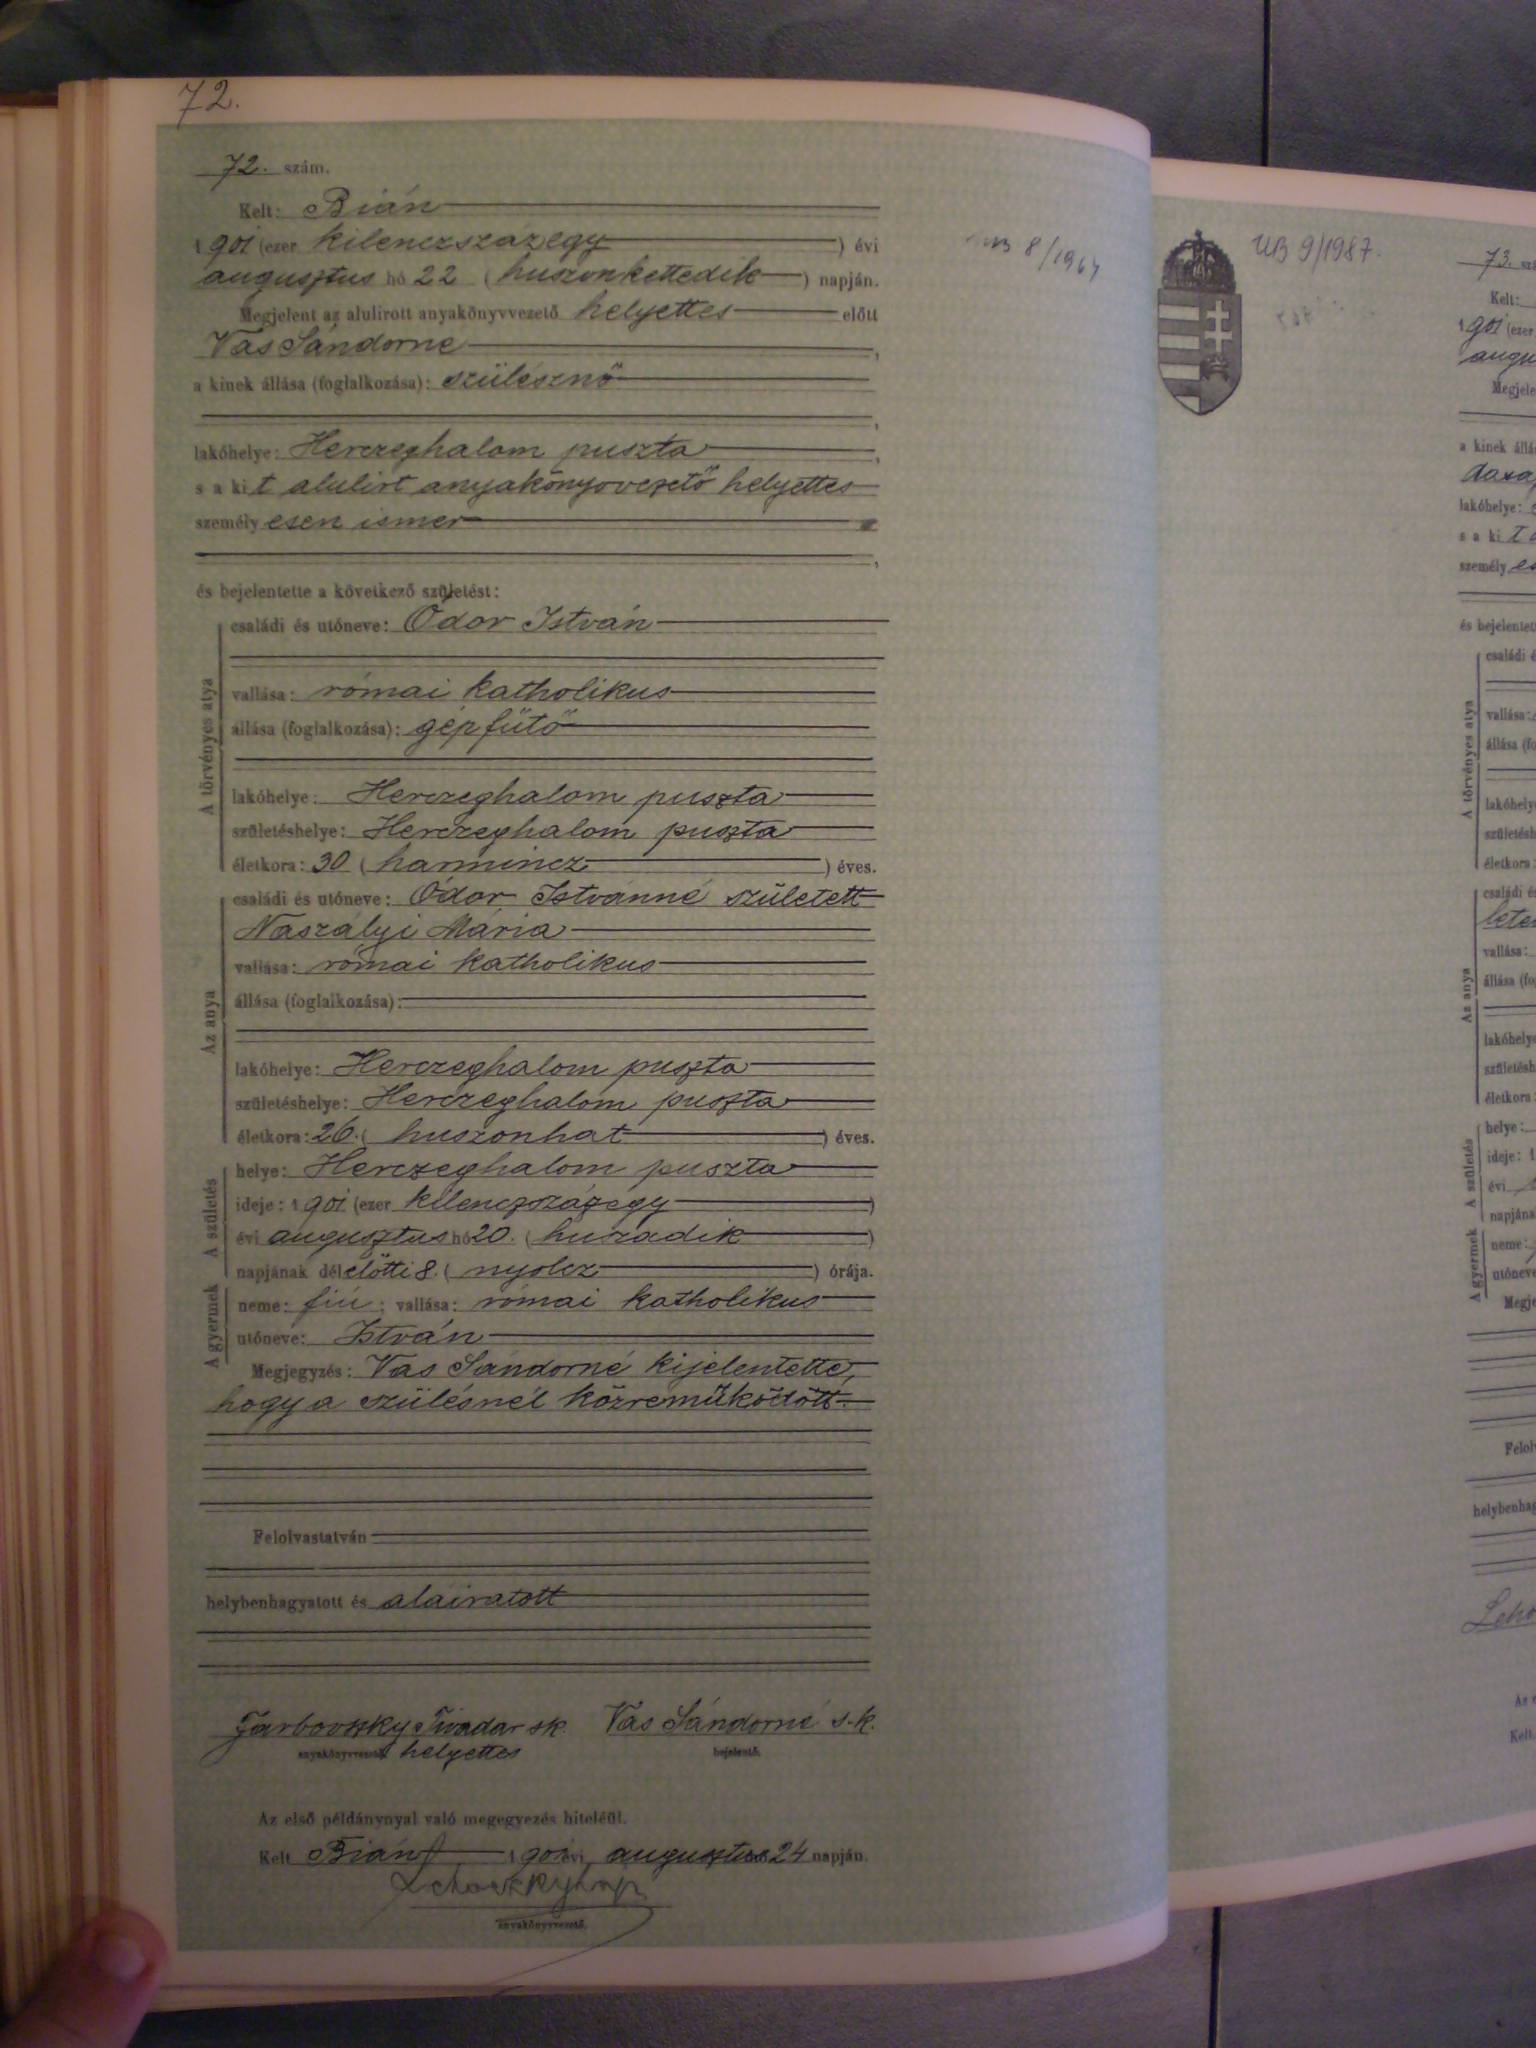 72.
72. szám.
Kelt: Bián
1901 (ezer kilenczszázegy) évi
augusztus hó 22 (huszonkettedik) napján.
Megjelent az alulirott anyakönyvvezető helyettes előtt
Vas Sándorné,
a kinek állása (foglalkozása): szülésznő
,
lakóhelye: Herczeghalom puszta,
s a kit alulirt anyakönyvvezető helyettes
személyesen ismer
,
és bejelentette a következő születést:
A törvényes atya
családi és utóneve: Ódor István
vallása: római katholikus
állása (foglalkozása): gépfűtő
lakóhelye: Herczeghalom puszta
születéshelye: Herczeghalom puszta
életkora: 30 (harmincz) éves.
Az anya
családi és utóneve: Ódor Istvánné született
Naszályi Mária
vallása: római katholikus
állása (foglalkozása):
lakóhelye: Herczeghalom puszta
születéshelye: Herczeghalom puszta
életkora: 26. (huszonhat) éves.
A születés
helye: Herczeghalom puszta
ideje: 1901 (ezer kilenczszázegy)
évi augusztus hó 20. (huszadik)
napjának délelőtti 8. (nyolcz) órája.
A gyermek
neme: fiú; vallása: római katholikus
utóneve: István
Megjegyzés: Vas Sándorné kijelentette,
hogy a szülésnél közreműködött.
Felolvastatván
helybenhagyatott és aláiratott
Tivadar sk. Vas Sándorné s.k.
anyakönyvvezető helyettes bejelentő.
Az első példánynyal való megegyezés hiteléül.
Kelt Bián 1901 évi augusztus hó 24 napján.
anyakönyvvezető.
8/1964
UB 9/1987.
73.
Kelt:
1901 (ezer
augu
Megjele
a kinek állá
lakóhelye:
s a kit a
személyes
és bejelentet
A törvényes atya
családi é
vallása:
állása (fo
lakóhelye
születésh
életkora:
Az anya
családi é
lete
vallása:
állása (fo
lakóhelye
születésh
életkora:
A születés
helye:
ideje: 1
évi
napjána
A gyermek
neme:
utóneve
Megje
Felol
helybenhag
Leho
Az e
Kelt